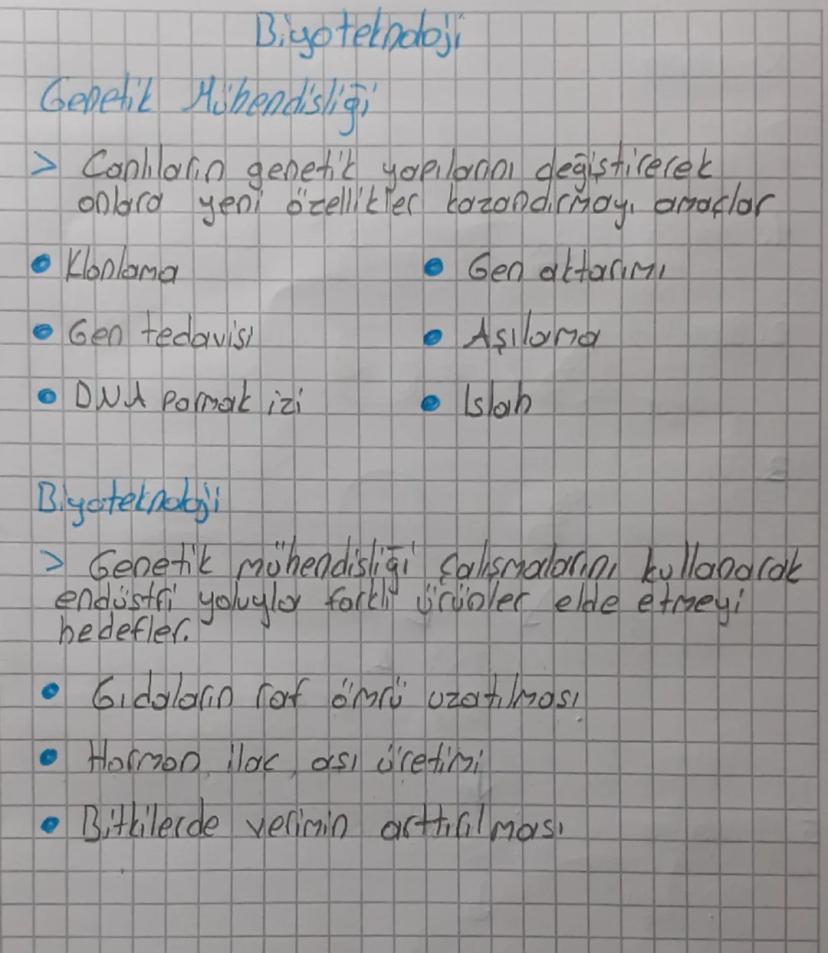 Biyoteknoloji
Genetik Mühendisliği
> Canlıların genetik yapılarını değiştirerek
onlara yeni özellikler kazandırmayı amaçlar
• Klonlama
• Gen aktarımı
• Gen tedavisi
• Aşılama
• DNA parmak izi
• Islah
Biyoteknoloji
> Genetik mühendisliği çalışmalarını kullanarak
endüstri yoluyla farklı ürünler elde etmeyi
hedefler.
• Gıdaların raf ömrü uzatılması
• Hormon, ilaç, aşı üretimi
• Bitkilerde verimin arttırılması